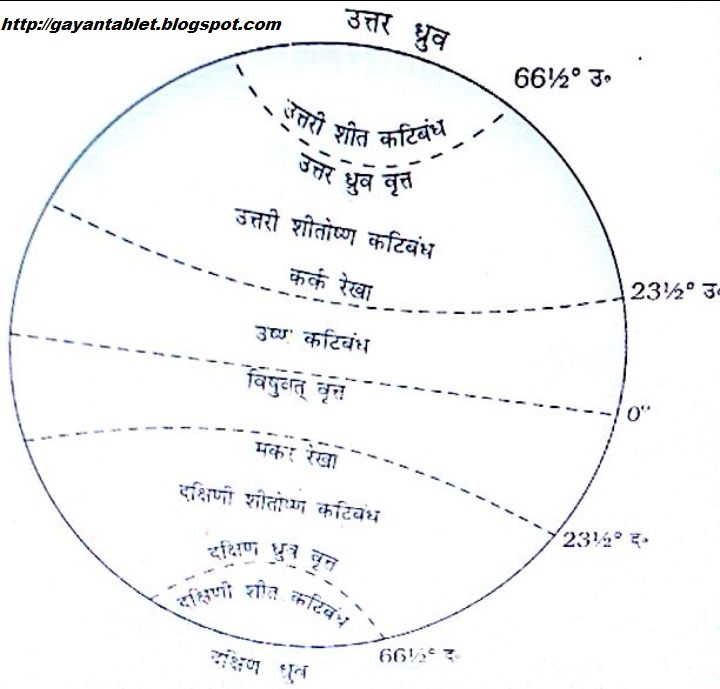 http://gayantablet.blogspot.com
उत्तर ध्रुव
66½° उ॰
उत्तरी शीत कटिबंध
उत्तर ध्रुव वृत्त
उत्तरी शीतोष्ण कटिबंध
कर्क रेखा
23½° उ॰
उष्ण कटिबंध
विषुवत् वृत्त
0°
मकर रेखा
दक्षिणी शीतोष्ण कटिबंध
23½° द॰
दक्षिण ध्रुव वृत्त
दक्षिणी शीत कटिबंध
66½° द॰
दक्षिण ध्रुव